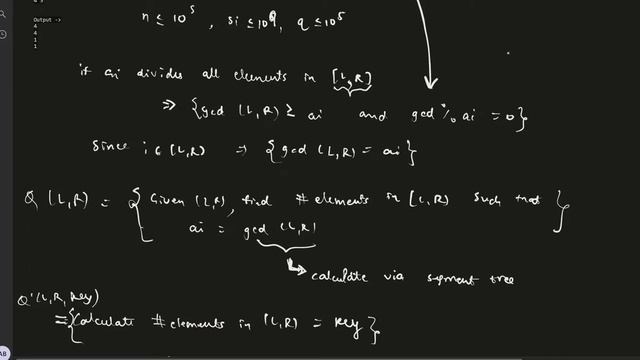 Output ->
4
4
1
1
n ≤ 10^5, si ≤ 10^9, q ≤ 10^5
if ai divides all elements in [L,R]
⇒ {gcd (L,R) ≥ ai and gcd % ai = 0}
Since i ∈ (L,R) ⇒ {gcd (L,R) = ai}
Q (L,R) = { Given (L,R), find # elements in [L,R] such that
ai = gcd (L,R) }
↳ calculate via segment tree
Q'(L,R, Key)
= {Calculate # elements in (L,R) = Key}
AB